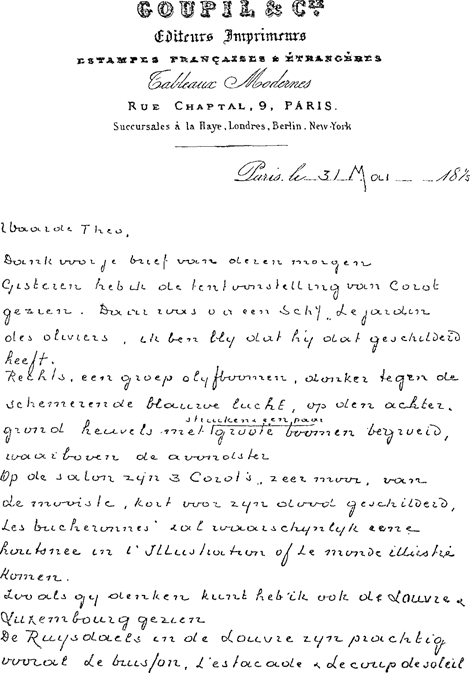 GOUPIL & Cie
Editeurs Imprimeurs
ESTAMPES FRANÇAISES & ÉTRANGÈRES
Tableaux Modernes
RUE CHAPTAL, 9, PARIS.
Succursales à la Haye, Londres, Berlin, New-York
Paris, le 31 Mai 1875
Waarde Theo,
Dank voor je brief van dezen morgen
Gisteren heb ik de tentoonstelling van Corot
gezien. Daar was o a een schij „Le jardin
des oliviers, ik ben bly dat hij dat geschilderd
heeft.
Rechts, een groep olyfboomen, donker tegen de
schemerende blauwe lucht, op den achter-
grond heuvels met struiken & een paar groote boomen begroeid,
waarboven de avondster
Op de salon zyn 3 Corot's, zeer mooi, van
de mooiste, kort voor zyn dood geschilderd,
Les bucheronnes' zal waarschynlyk eene
houtsnee in l'Illustration of Le monde illustré
komen.
Zooals gy denken kunt heb ik ook de Louvre &
Luxembourg gezien
De Ruysdaels in de Louvre zyn prachtig
vooral Le buisson, L'estacade & le coup de soleil